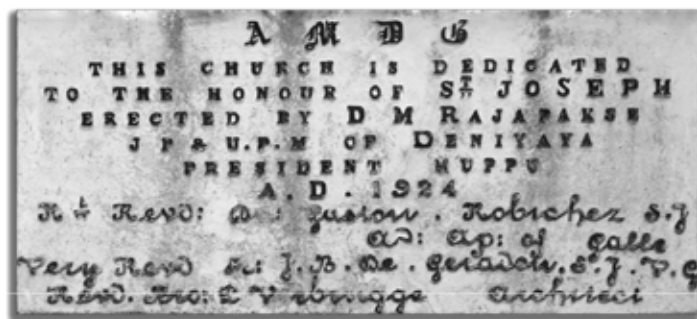 A M D G
THIS CHURCH IS DEDICATED
TO THE HONOUR OF ST JOSEPH
ERECTED BY D M RAJAPAKSE
J P & U.P.M OF DENIYAYA
PRESIDENT MUPPU
A.D. 1924
Rt Revd: Dr: Gaston. Robichez S.J
Ad: Ap: of Galle
Very Revd Fr: J.B. De. S.J. V.G
Revd. Bro: L Verbrugge Architect